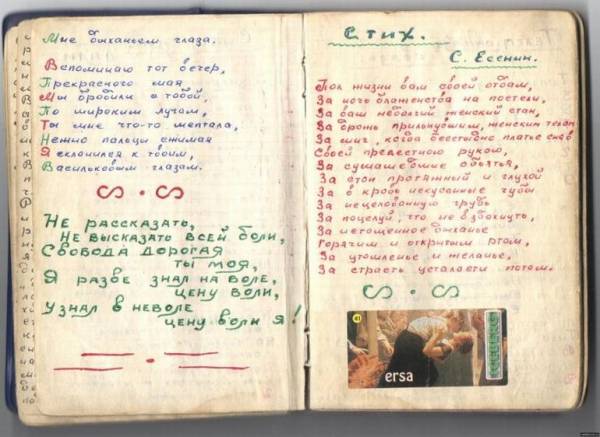 Мне дыханьем глаза.
Вспоминаю тот вечер,
Прекрасного мая
Мы бродили с тобой,
По широким лучам,
Ты мне что-то шептала,
Нежно пальцы сжимая
Я склонился к твоим,
Васильковым глазам.
Не рассказать,
Не высказать всей боли,
Свобода дорогая
ты моя,
Я разве знал на воле,
цену воли,
Узнал в неволе
цену воли я!
Стих.
С. Есенин.
Пол жизни вам своей отдам,
За ночь блаженства на постели,
За ваш небольгий женский стан,
За бронь прильнувшим, женским телам
За миг, когда бесстыдно платье сняв
Своей прелестною рукою,
За сумасшедшие объятья,
За стон протяжный и глухой
За в кровь искусанные губы
За исцелованную грудь
За поцелуй, что не вздохнуть,
За истощенное дыханье
Горячим и открытым ртом,
За утомленье и желанье,
За страсть усталости потом.
41
ersa